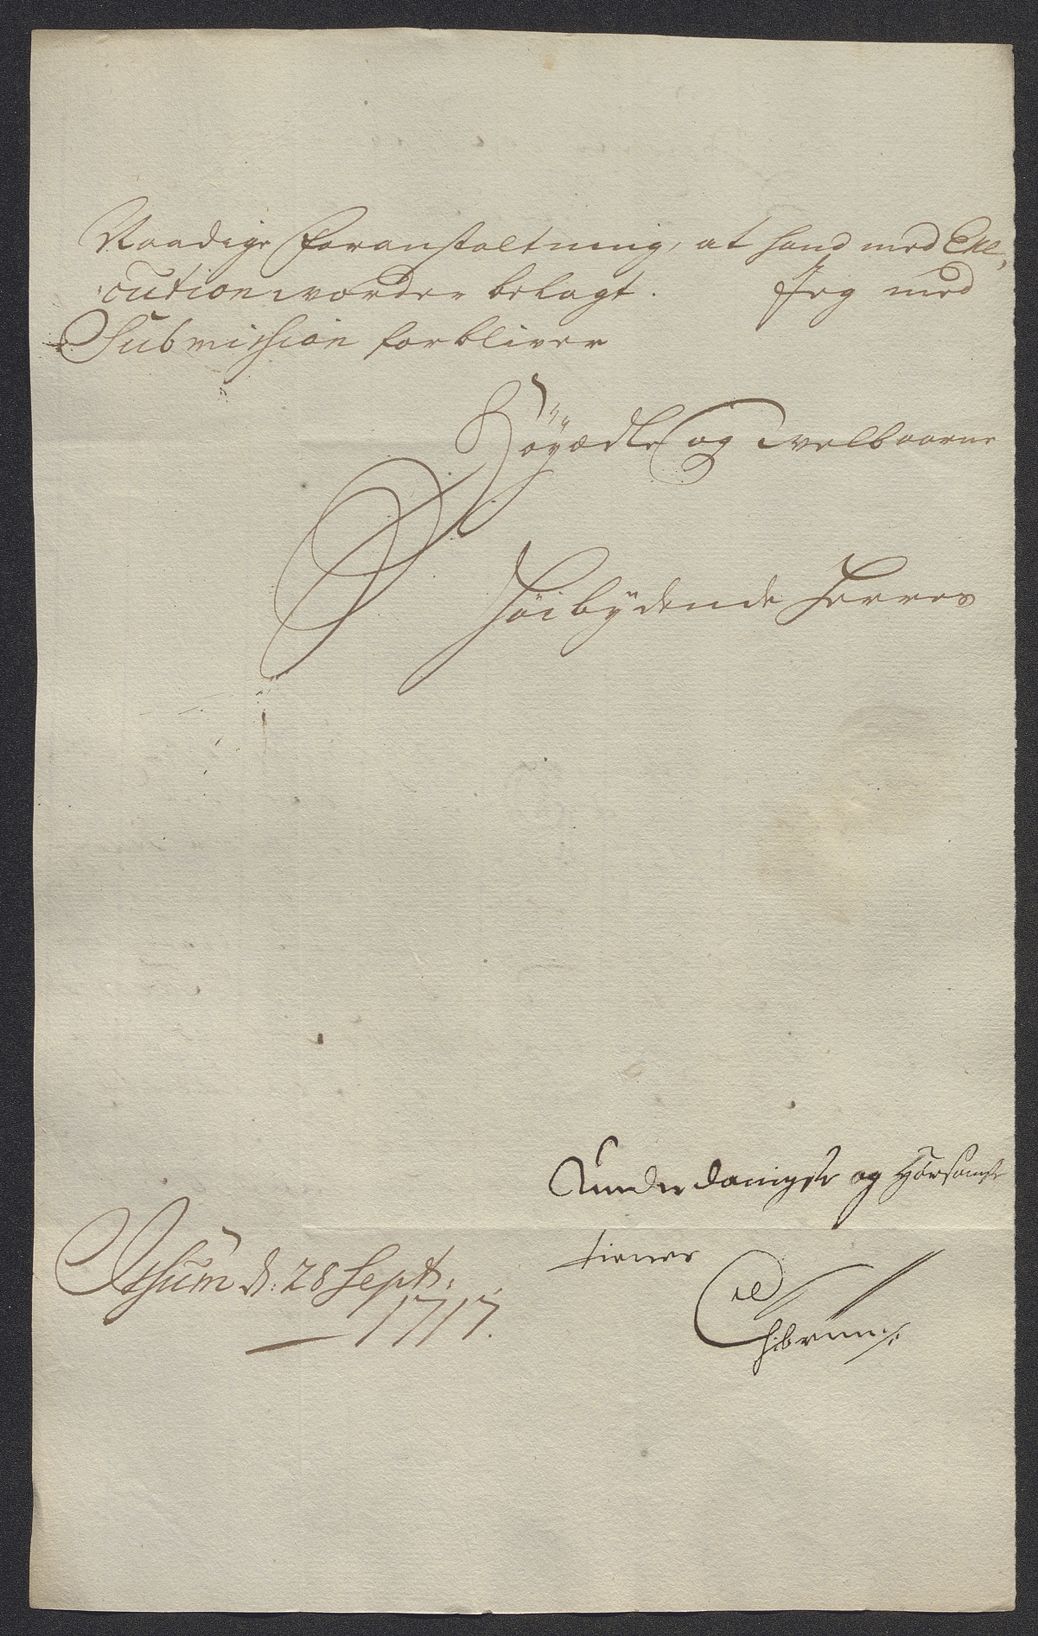 Naadige foranstaltning, at hand med Exe,
cution worder belagt. Jeg med
Submission forbliver
Höyædle og welbaarne
Höibÿdende Herres
Underdanigste og Hörsomste
tiener
d: 28 Sept:
1717.